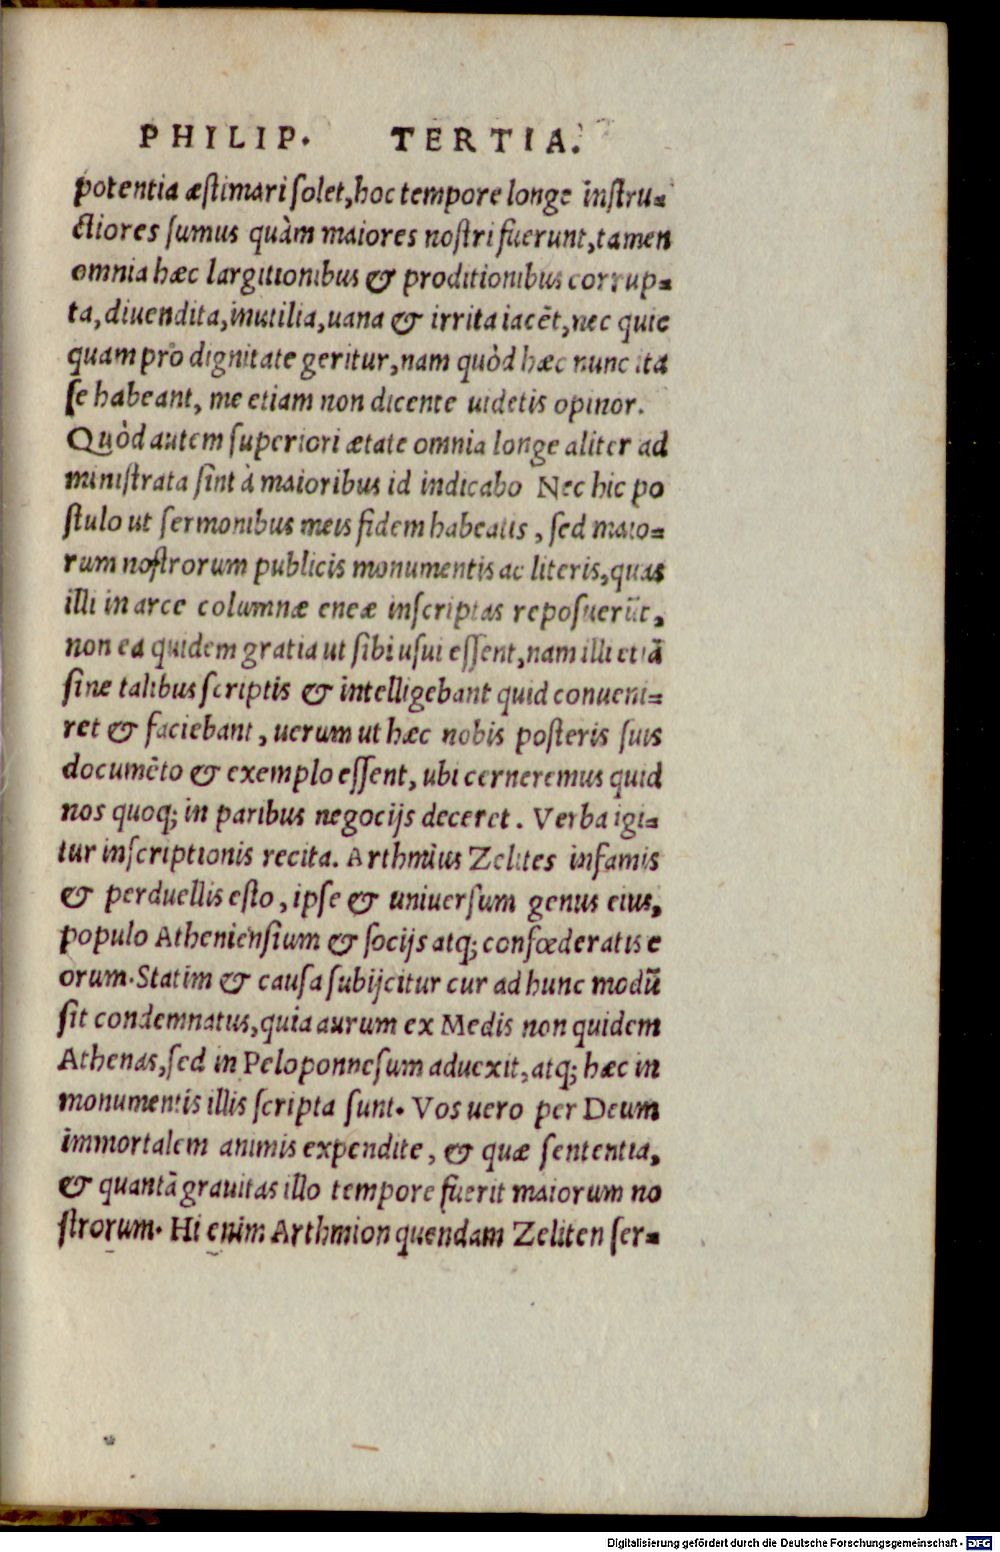 PHILIP. TERTIA.
potentia æstimari solet, hoc tempore longe instru-
ctiores sumus quàm maiores nostri fuerunt, tamen
omnia hæc largitionibus & proditionibus corrup-
ta, diuendita, inutilia, uana & irrita iacēt, nec quic
quam pro dignitate geritur, nam quòd hæc nunc ita
se habeant, me etiam non dicente uidetis opinor.
Quòd autem superiori ætate omnia longe aliter ad
ministrata sint à maioribus id indicabo Nec hic po
stulo ut sermonibus meis fidem habeatis, sed maio-
rum nostrorum publicis monumentis ac literis, quas
illi in arce columnæ eneæ inscriptas reposuerūt,
non ea quidem gratia ut sibi usui essent, nam illi etiā
sine talibus scriptis & intelligebant quid conueni-
ret & faciebant, uerum ut hæc nobis posteris suis
documēto & exemplo essent, ubi cerneremus quid
nos quoq; in paribus negocijs deceret. Verba igi-
tur inscriptionis recita. Arthmius Zelites infamis
& perduellis esto, ipse & uniuersum genus eius,
populo Atheniensium & socijs atq; confœderatis e
orum. Statim & causa subijcitur cur ad hunc modū
sit condemnatus, quia aurum ex Medis non quidem
Athenas, sed in Peloponnesum aduexit, atq; hæc in
monumentis illis scripta sunt. Vos uero per Deum
immortalem animis expendite, & quæ sententia,
& quantā grauitas illo tempore fuerit maiorum no
strorum. Hi enim Arthmion quendam Zeliten ser-
Digitalisierung gefördert durch die Deutsche Forschungsgemeinschaft - DFG